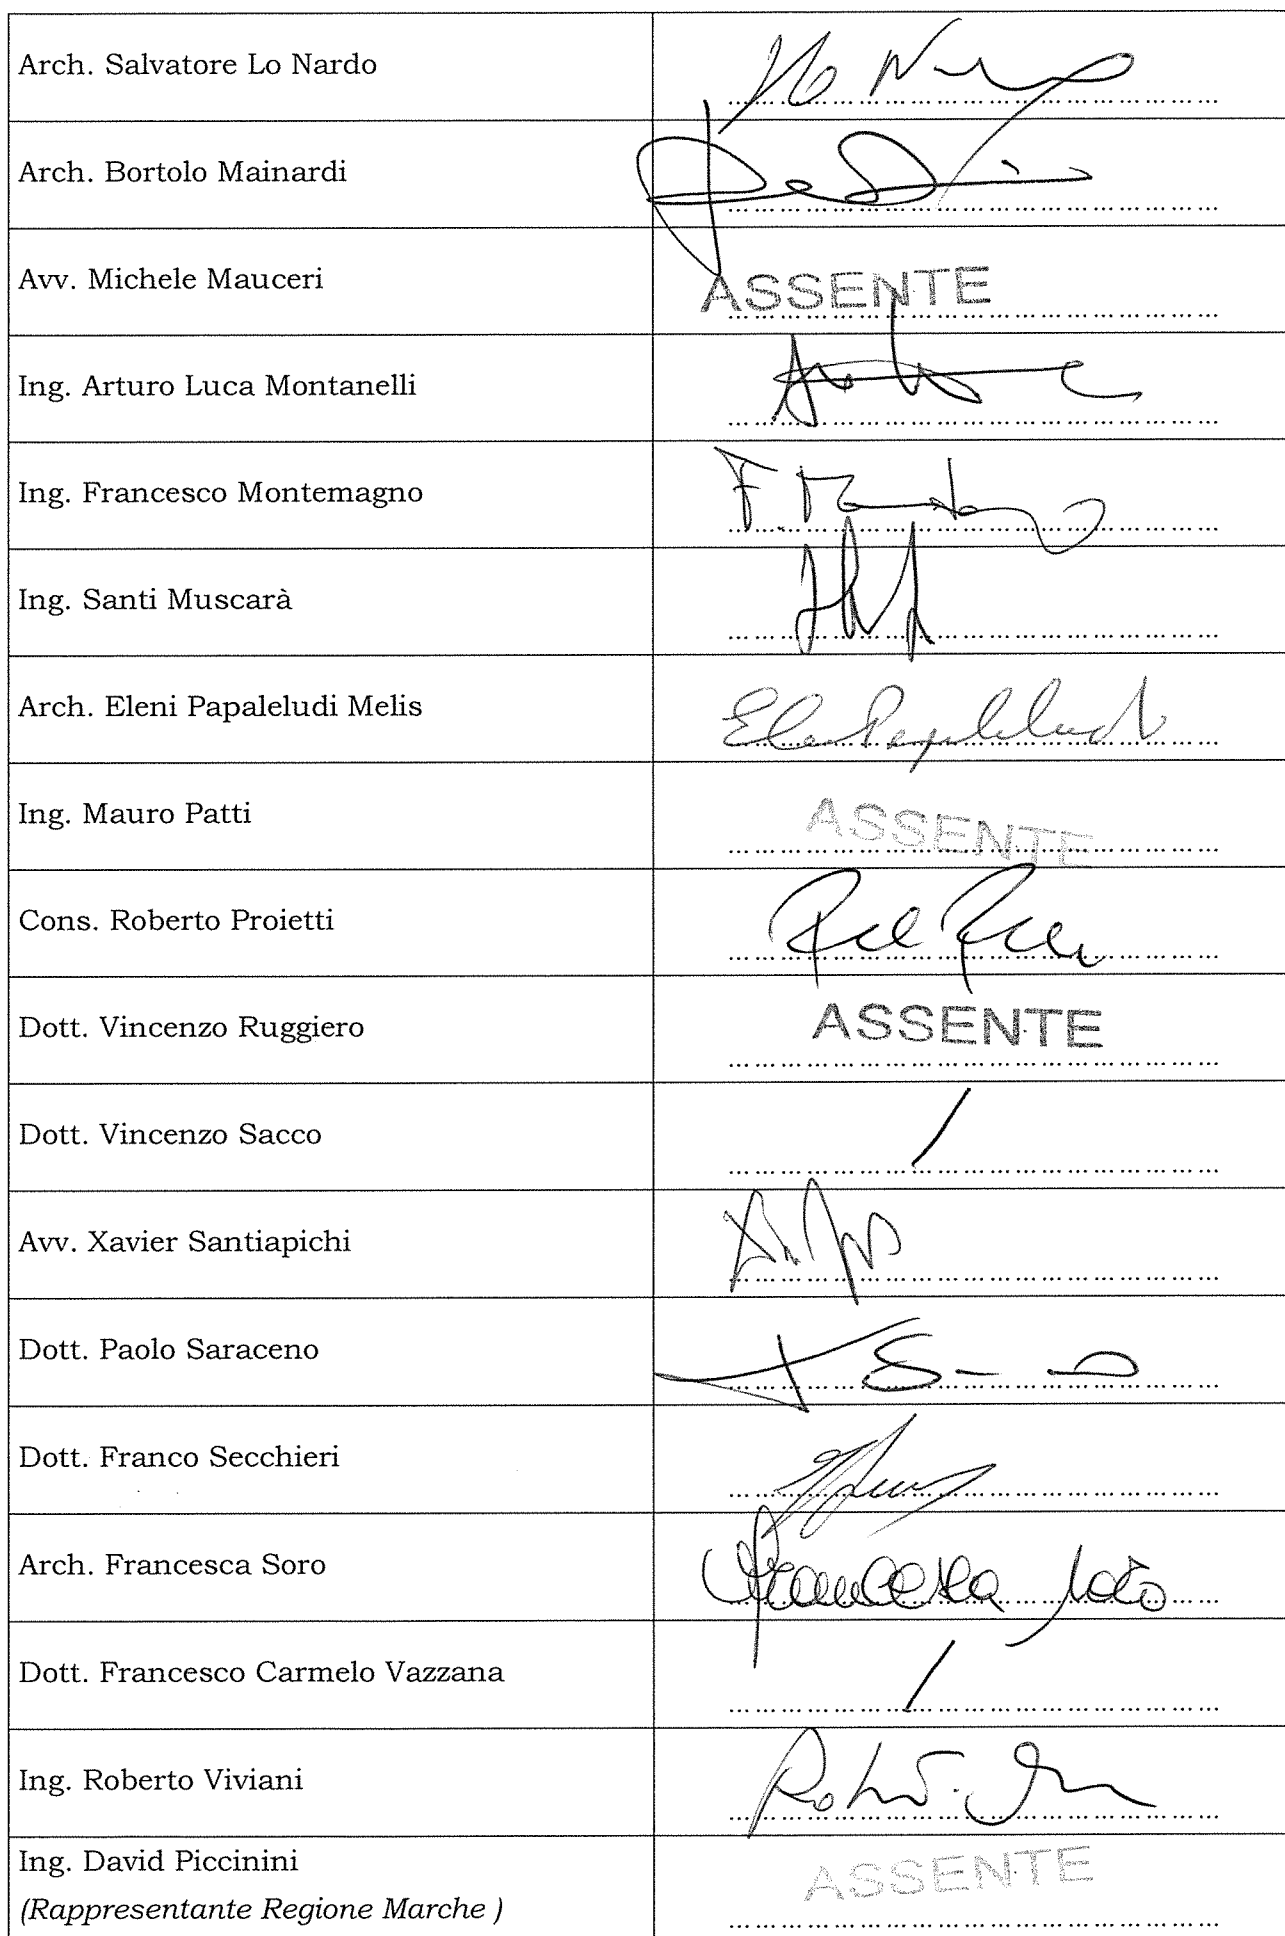 Arch. Salvatore Lo Nardo
Arch. Bortolo Mainardi
Avv. Michele Mauceri ASSENTE
Ing. Arturo Luca Montanelli
Ing. Francesco Montemagno
Ing. Santi Muscarà
Arch. Eleni Papaleludi Melis
Ing. Mauro Patti ASSENTE
Cons. Roberto Proietti
Dott. Vincenzo Ruggiero ASSENTE
Dott. Vincenzo Sacco /
Avv. Xavier Santiapichi
Dott. Paolo Saraceno
Dott. Franco Secchieri
Arch. Francesca Soro Francesca Soro
Dott. Francesco Carmelo Vazzana /
Ing. Roberto Viviani
Ing. David Piccinini ASSENTE
(Rappresentante Regione Marche )